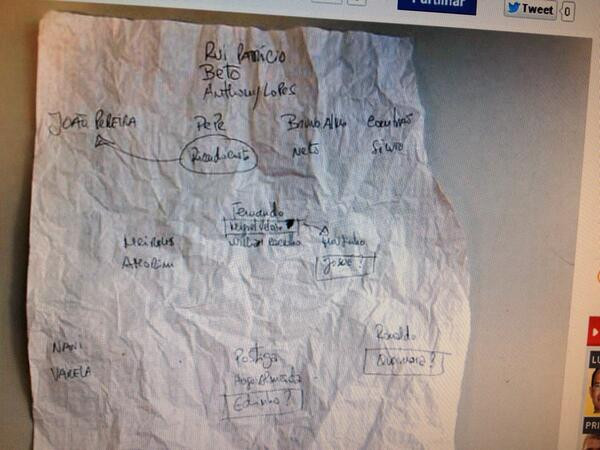 Partilhar
Tweet
0
Rui Patrício
Beto
Anthony Lopes
João Pereira
Pepe
Bruno Alves
Coentrão
Ricardo Costa
Neto
Silvio
Fernando
Miguel Veloso
William Carvalho
Meireles
Moutinho
Amorim
Josué?
Ronaldo
Nani
Postiga
Quaresma?
Varela
Hugo Almeida
Edinho?
LU
PRI